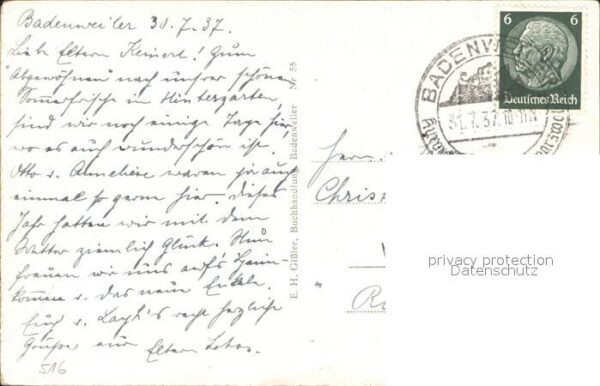 Badenweiler 30.7.37.
Liebe Eltern Keinert! Zum
"Abgewöhnen" nach unsrer schönen
Sommerfrische in Hintergarten
sind wir noch einige Tage hier,
wo es auch wunderschön ist.
Otto u. Anneliese waren ja auch
einmal so gern hier. Dieses
Jahr hatten wir mit dem
Wetter ziemlich Glück. Nun
freuen wir uns auf's Heim-
kommen u. das neue Enkele.
Euch u. recht herzliche
Grüsse Eltern
516
E. H. Gißler, Buchhandlung, Badenweiler Nr. 55
6 6
Deutsches Reich
BADENWEILER
31.7.37.10-11
Herr
Christ
privacy protection
Datenschutz